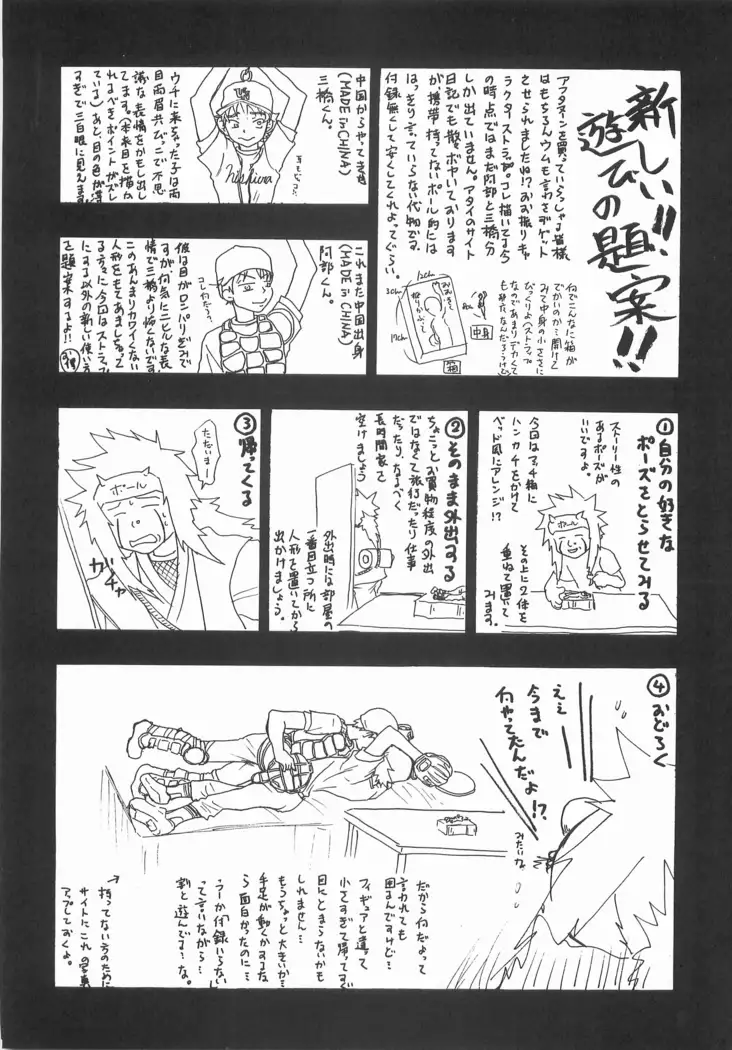 新しい!!
遊びの題案!!
アフタヌーンを買っていらっしゃる皆様
はもちろんウムも言わさずゲット
させられましたね!?おお振りキャ
ラクターストラップ。コレ描いてる今
の時点ではまだ阿部と三橋分
しか出ていません。アタイのサイト
日記でも散々ボヤいております
が携帯持ってないポール的には
はっきり言っていらない代物です。
付録無くして安くしてくれよってぐらい。
何でこんなに箱が
でかいのか…開けて
みて中身の小ささに
びっくりよ(ストラップ
なのであまりデカくて
12cm
3cm
17cm
中身
箱
中国からやってきた
(MADE in CHINA)
三橋くん。
ウチに来なった子は両
目両眉共びっこで不思
議な表情をかもし出し
てます。(本来目を描か
れるべきポイントがズレ
ている)あと、目の色が薄
すぎで三白眼に見えます
これまた中国出身
(MADE in CHINA)
阿部くん。
コレ何だろ?
彼は目がロンパリぎみで
すが、何気にニヒルな表
情で三橋より怖いです
このあんまりカワイくない
人形をもてあましちゃって
る方々に今回はストラップ
にする以外の新しい使い方
を題案するよ!!
①自分の好きな
ポーズをとらせてみる
ストーリー性の
あるポーズが
いいですよ。
今回はマッチ箱に
ハンカチをかけて
ベッド風にアレンジ!?
その上に2体を
重ねて置いて
みます。
ポール
②そのまま外出する
ちょこっとお買物程度の外出
ではなくて旅行だったり仕事
だったり、なるべく
長時間家を
空けましょう
外出時には部屋の
一番目立つ所に
人形を置いてから
出かけましょう。
③帰ってくる
ただいまー
ポール
ガチャ
④おどろく
ええ
今まで
何やってたんだよ!?
みたいな。
だから何だよって
言われても
困るんですけど…
フィギュアと違って
小さすぎて帰ってすぐ
目にとまらないかも
しれません…
もうちょっと大きいか…
手足が動くかするな
ら面白かったのに…
って言いながら…
散々遊んでる…な。
↑
持ってない方のために
サイトにこれの写真
アップしておくよ。